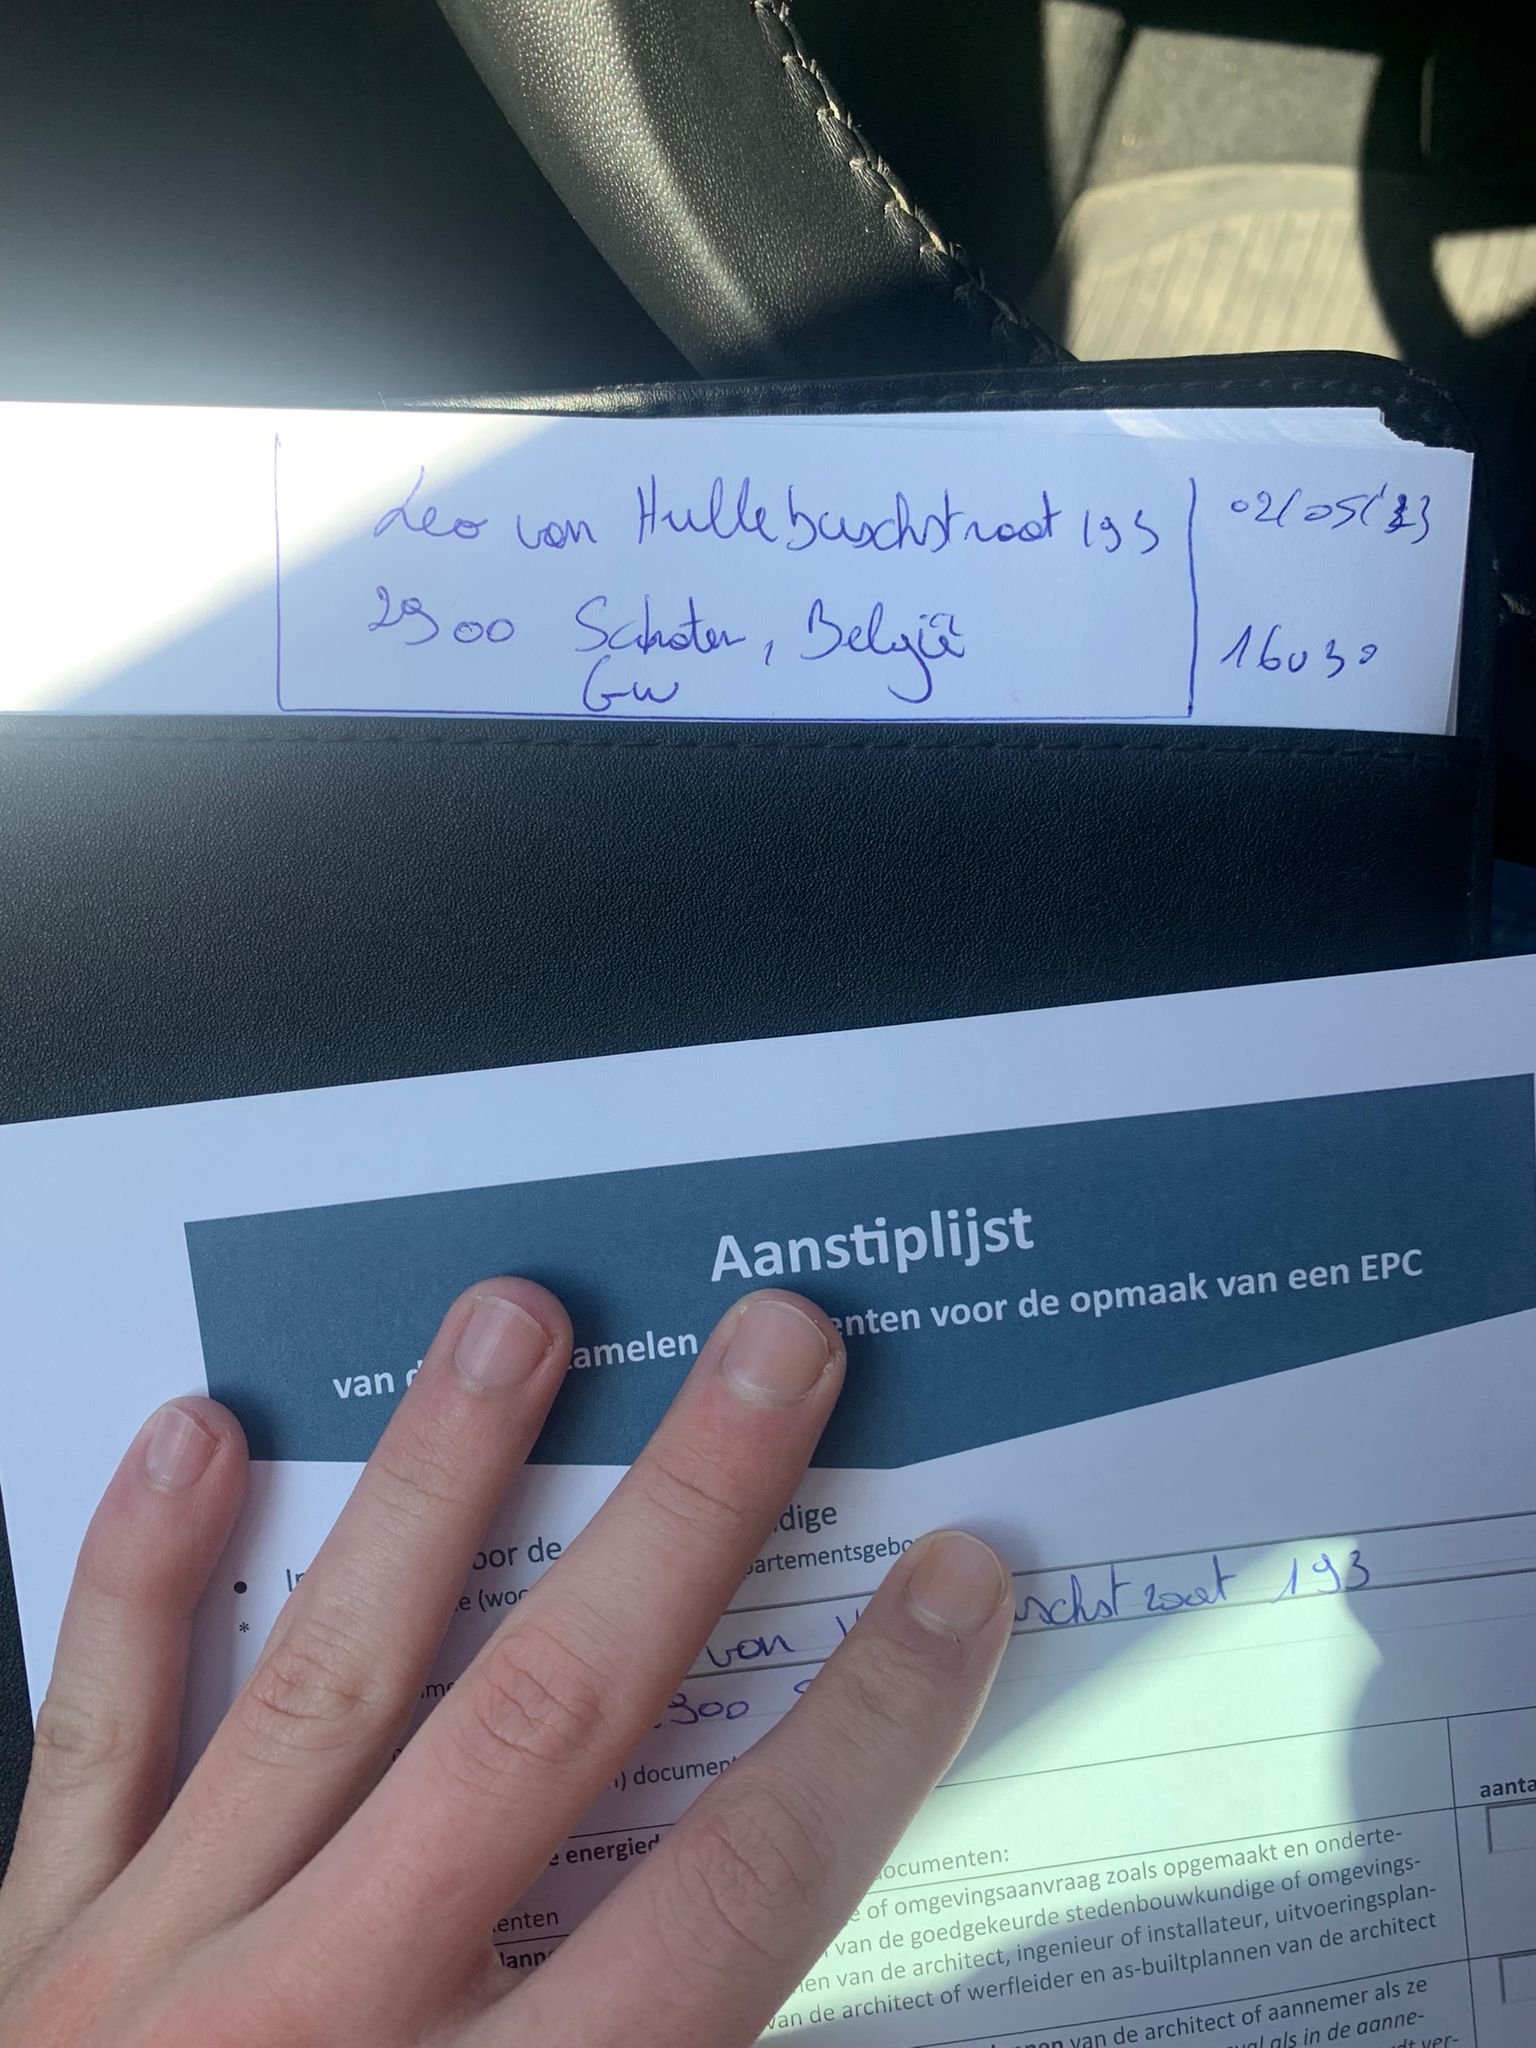 Leo van Hullebuschstraat 193
2900 Schoten, België
GW
02/05/'23
16u30
Aanstiplijst
van amelen enten voor de opmaak van een EPC
oor de dige
e (woo partementsgebo
van schstraat 193
900
) documen
aanta
e energied ocumenten:
e of omgevingsaanvraag zoals opgemaakt en onderte-
enten van de goedgekeurde stedenbouwkundige of omgevings-
lann en van de architect, ingenieur of installateur, uitvoeringsplan-
van de architect of werfleider en as-builtplannen van de architect
van de architect of aannemer als ze
al als in de aanne-
dt ver-